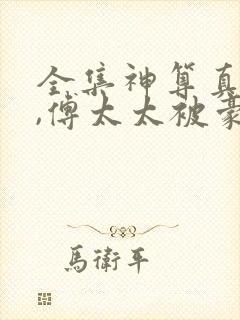 全集神算真
,傅太太被豪
馬衛平